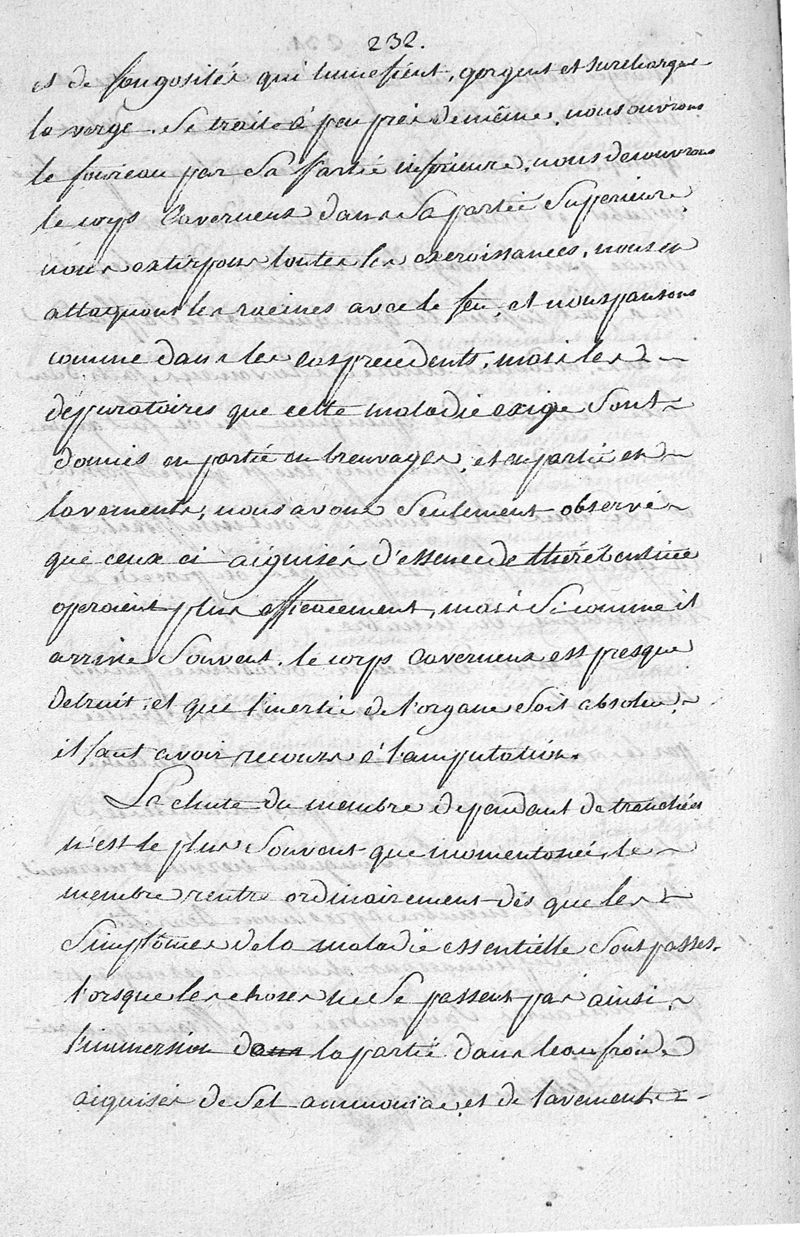 232.
et de fongosités qui tumefient, gorgent et surcharge
la verge. Se traite à peu près de même, nous ouvrons
le foureau par Sa partie inferieure, nous decouvrons
le corps Caverneux dans Sa partie Superieure
nous extirpons toutes les excroissances, nous en
attaquons les racines avec le feu, et nous pansons
comme dans les cas precedents, mais les
depuratoires que cette maladie exige Sont
donnés en partie en breuvages, et en partie en
lavements, nous avons Seulement observe
que ceux ci aiguisés d'essence de therebentine
operoient plus efficacement, mais Si comme il
arrive Souvent, le corps Caverneux est presque
detruit, et que l'inertie de l'organe Soit absolue,
il faut avoir recours à l'amputation.
La chute du membre dependant de tranchées
n'est le plus Souvent que momentonée, le
membre rentre ordinairement dès que les
Simptômes de la maladie essentielle Sont passes
lorsque les choses ne Se passent pas ainsi,
l'immersion de la partie dans l'eau froide
aiguisée de Sel ammoniac, et de lavements